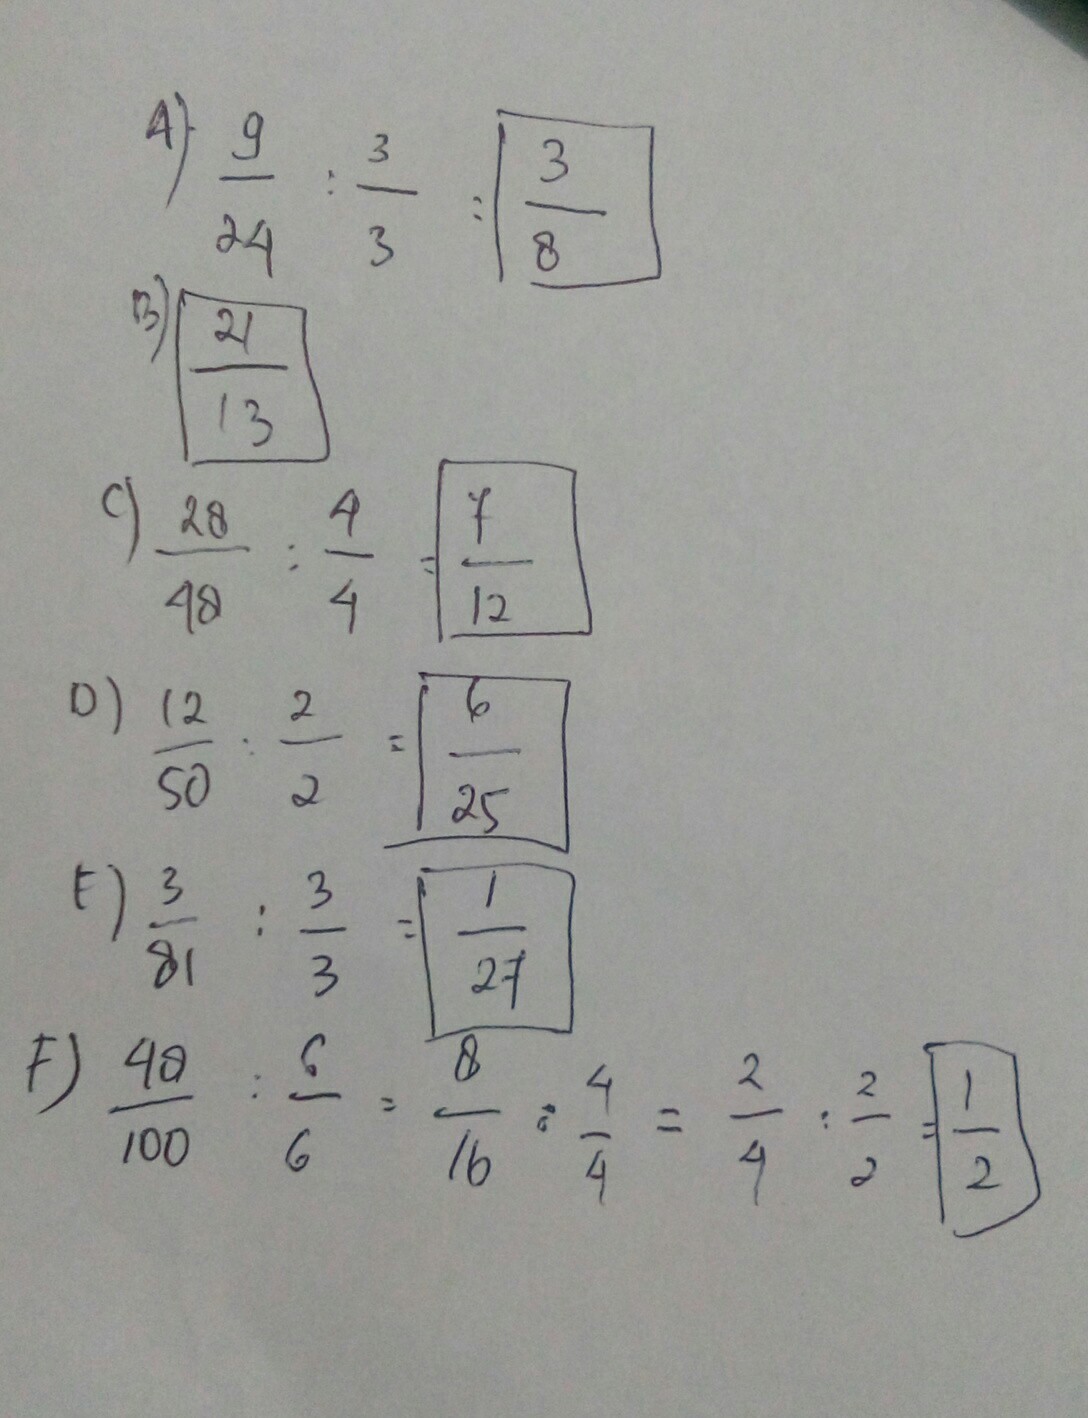 A) 9/24 : 3/3 = 3/8
B) 21/13
C) 28/48 : 4/4 = 7/12
D) 12/50 : 2/2 = 6/25
E) 3/81 : 3/3 = 1/27
F) 48/100 : 6/6 = 8/16 : 4/4 = 2/4 : 2/2 = 1/2